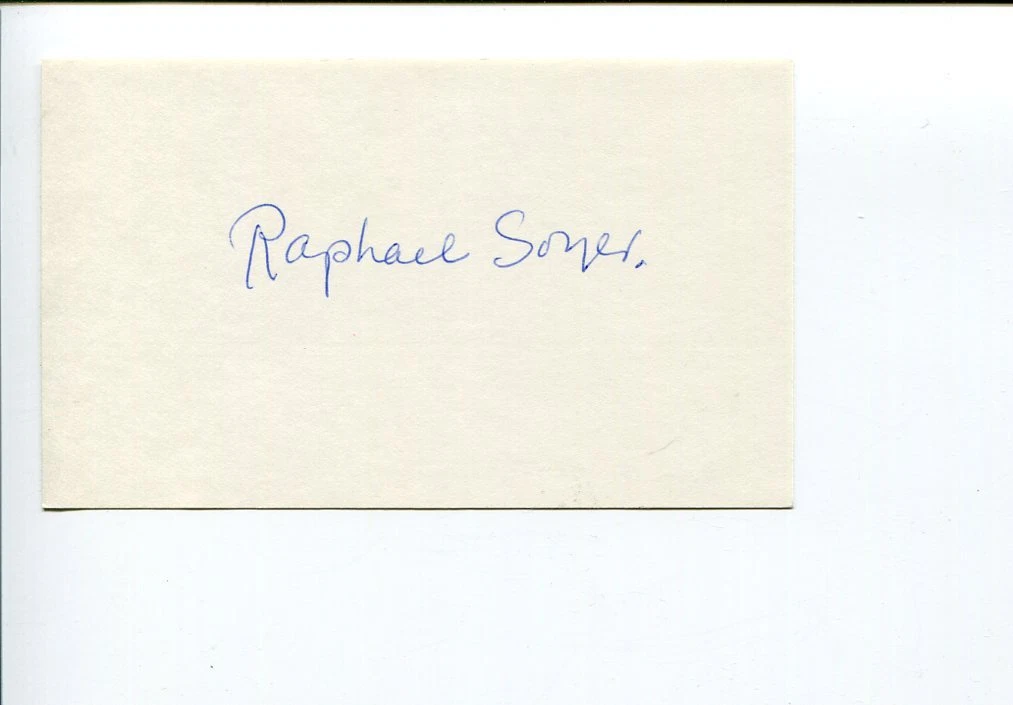 Raphael Soyer.